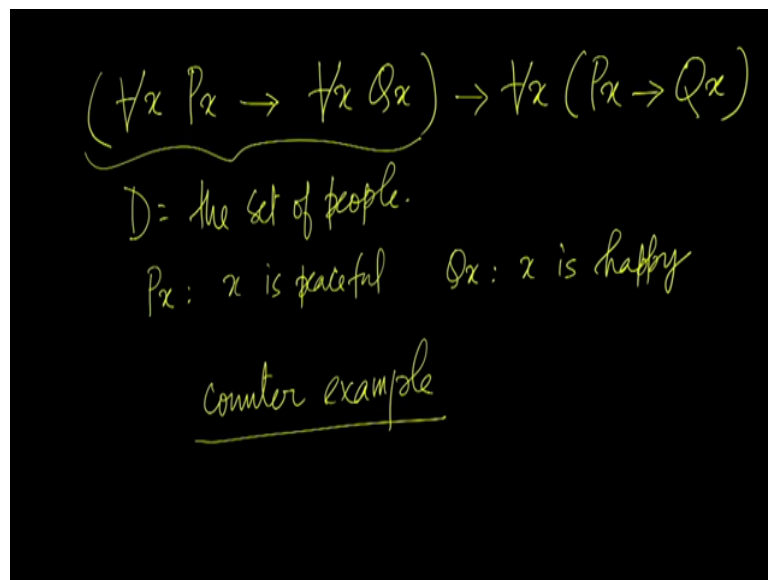 (∀x Px → ∀x Qx) → ∀x (Px → Qx)
D = the set of people.
Px : x is peaceful Qx : x is happy
counter example